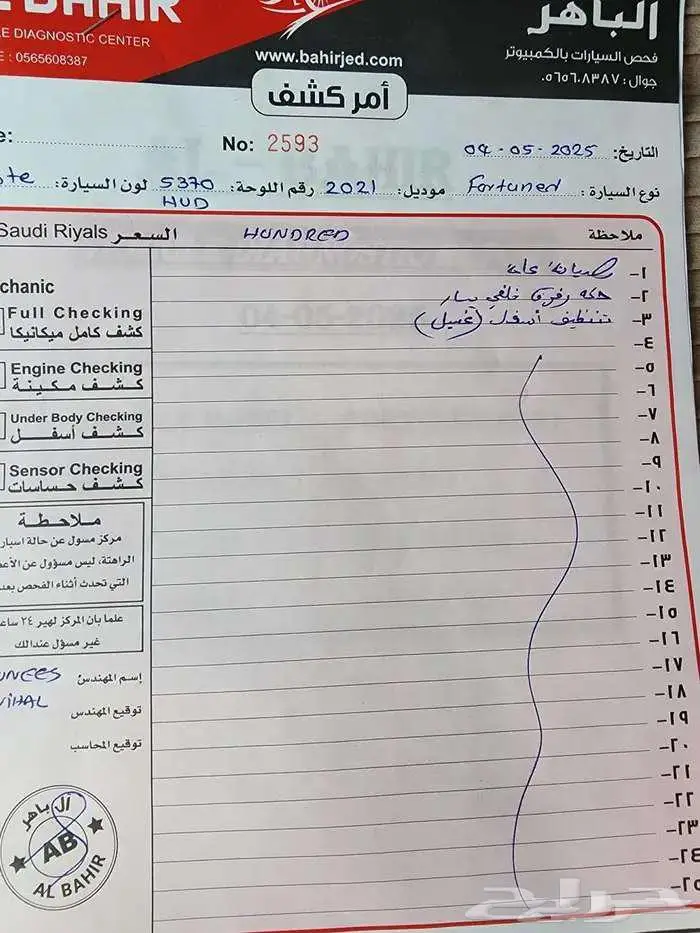 BAHIR
الباهر
DIAGNOSTIC CENTER
فحص السيارات بالكمبيوتر
: 0565608387
www.bahirjed.com
جوال: ٠٥٦٥٦٠٨٣٨٧
أمر كشف
No: 2593
التاريخ: 04-05-2025
نوع السيارة: Fortuned موديل: 2021 رقم اللوحة: 5370 HUD لون السيارة:
Saudi Riyals السعر
HUNDRED
ملاحظة
١- صيانة عامة
٢- حكه رفرف خلفي يسار
٣- تنظيف أسفل (غسيل)
٤-
٥-
٦-
٧-
٨-
٩-
١٠-
١١-
١٢-
١٣-
١٤-
١٥-
١٦-
١٧-
١٨-
١٩-
٢٠-
٢١-
٢٢-
٢٣-
٢٤-
٢٥-
Full Checking
كشف كامل ميكانيكا
Engine Checking
كشف مكينة
Under Body Checking
كشف أسفل
Sensor Checking
كشف حساسات
ملاحظة
مركز مسول عن حالة
الراهنة، ليس مسؤول عن
التي تحدث أثناء الفحص
علما بان المركز لهير ٢٤
غير مسؤل عندالك
إسم المهندس
VIHAL
توقيع المهندس
توقيع المحاسب
ال باهر
AB
AL BAHIR
حراج